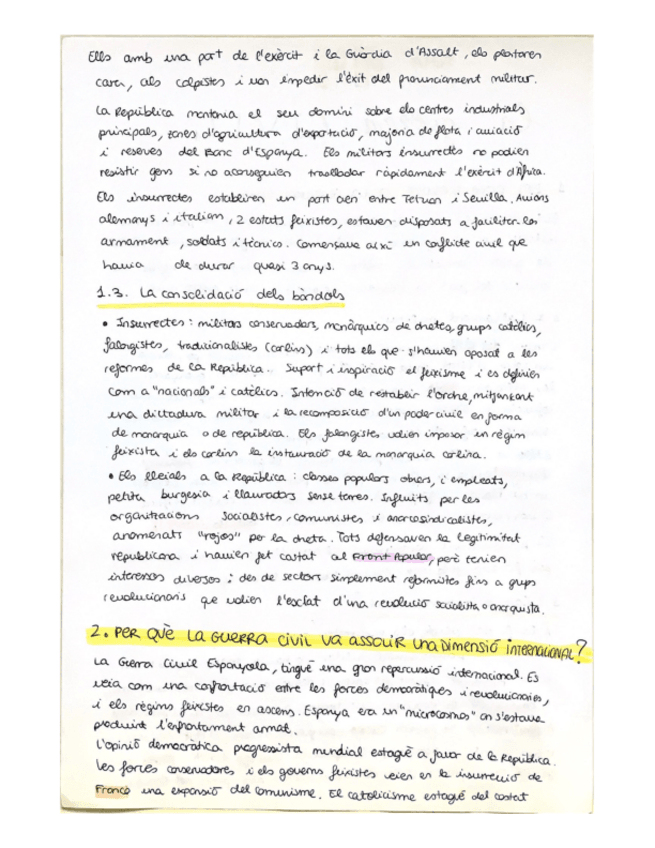 Ells amb una part de l'exèrcit i la Guàrdia d'Assalt, els plantaren
cara, als colpistes i van impedir l'èxit del pronunciament militar.
La República mantenia el seu domini sobre els centres industrials
principals, zones d'agricultura d'exportació, majoria de flota i aviació
i reserves del Banc d'Espanya. Els militars insurrectes no podien
resistir gens si no aconseguien traslladar ràpidament l'exèrcit d'Àfrica.
Els insurrectes establiren un pont aeri entre Tetuan i Sevilla. Avions
alemanys i italians, 2 estats feixistes, estaven disposats a facilitar-los
armament, soldats i tècnics. Començava així un conflicte civil que
havia de durar quasi 3 anys.
1.3. La consolidació dels bàndols
• Insurrectes: militars conservadors, monàrquics de dretes, grups catòlics,
falangistes, tradicionalistes (carlins) i tots els que s'havien oposat a les
reformes de la República. Suport i inspiració el feixisme i es definien
com a "nacionals" i catòlics. Intenció de restablir l'ordre, mitjançant
una dictadura militar i la recomposició d'un poder civil en forma
de monarquia o de república. Els falangistes volien imposar un règim
feixista i els carlins la instauració de la monarquia carlina.
• Els lleials a la República: classes populars obrers, i empleats,
petita burgesia i llauradors sense terres. Influïts per les
organitzacions socialistes, comunistes i anarcosindicalistes,
anomenats "rojos" per la dreta. Tots defensaven la legitimitat
republicana i havien fet costat al Front Popular, però tenien
interessos diversos: des de sectors simplement reformistes fins a grups
revolucionaris que volien l'esclat d'una revolució socialista o anarquista.
2. PER QUÈ LA GUERRA CIVIL VA ASSOLIR UNA DIMENSIÓ INTERNACIONAL?
La Guerra Civil Espanyola, tingué una gran repercussió internacional. Es
veia com una confrontació entre les forces democràtiques i revolucionàries,
i els règims feixistes en ascens. Espanya era un "microcosmos" on s'estava
produint l'enfrontament armat.
L'opinió democràtica progressista mundial estagué a favor de la República.
Les forces conservadores i els governs feixistes veien en la insurrecció de
Franco una expansió del comunisme. El catolicisme estagué del costat